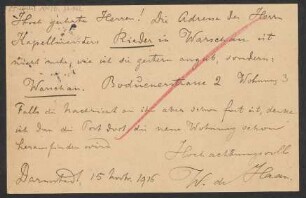 Hoch geehrte Herren! Die Adresse des Herrn
Kapellmeisters Rieder in Warschau ist
nicht mehr, wie ich sie gestern angab, sondern:
Warschau. Boduenerstrasse 2 Wohnung 3
Falls die Nachricht an ihn aber schon fort ist, denke
ich das die Post dort die neue Wohnung schon
herausfinden wird.
Hochachtungsvoll
Darmstadt, 15 1916 W. de Haan